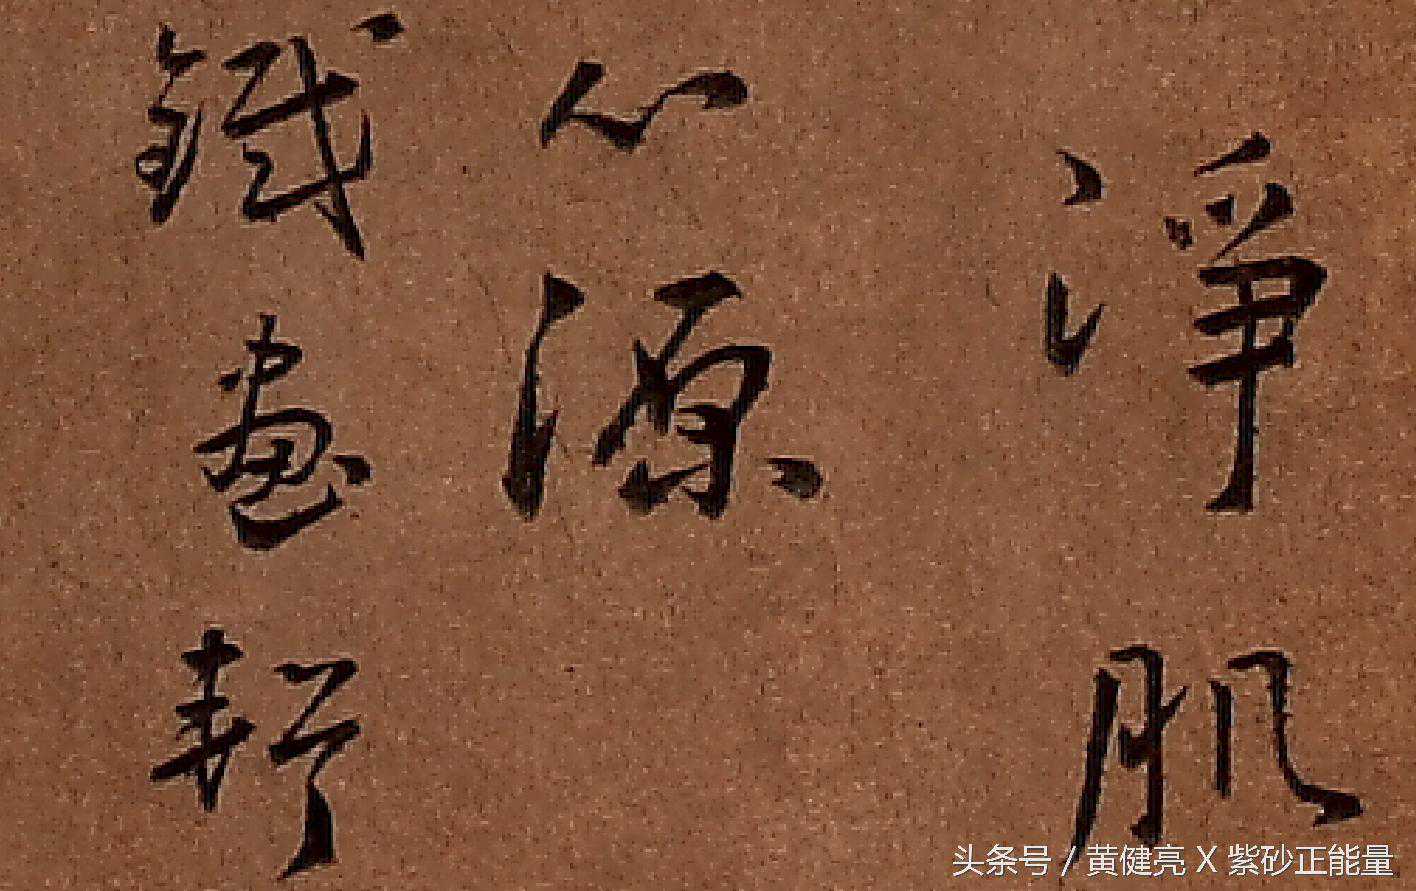 淨肌
心源
鐵畫軒
头条号 / 黄健亮 X 紫砂正能量